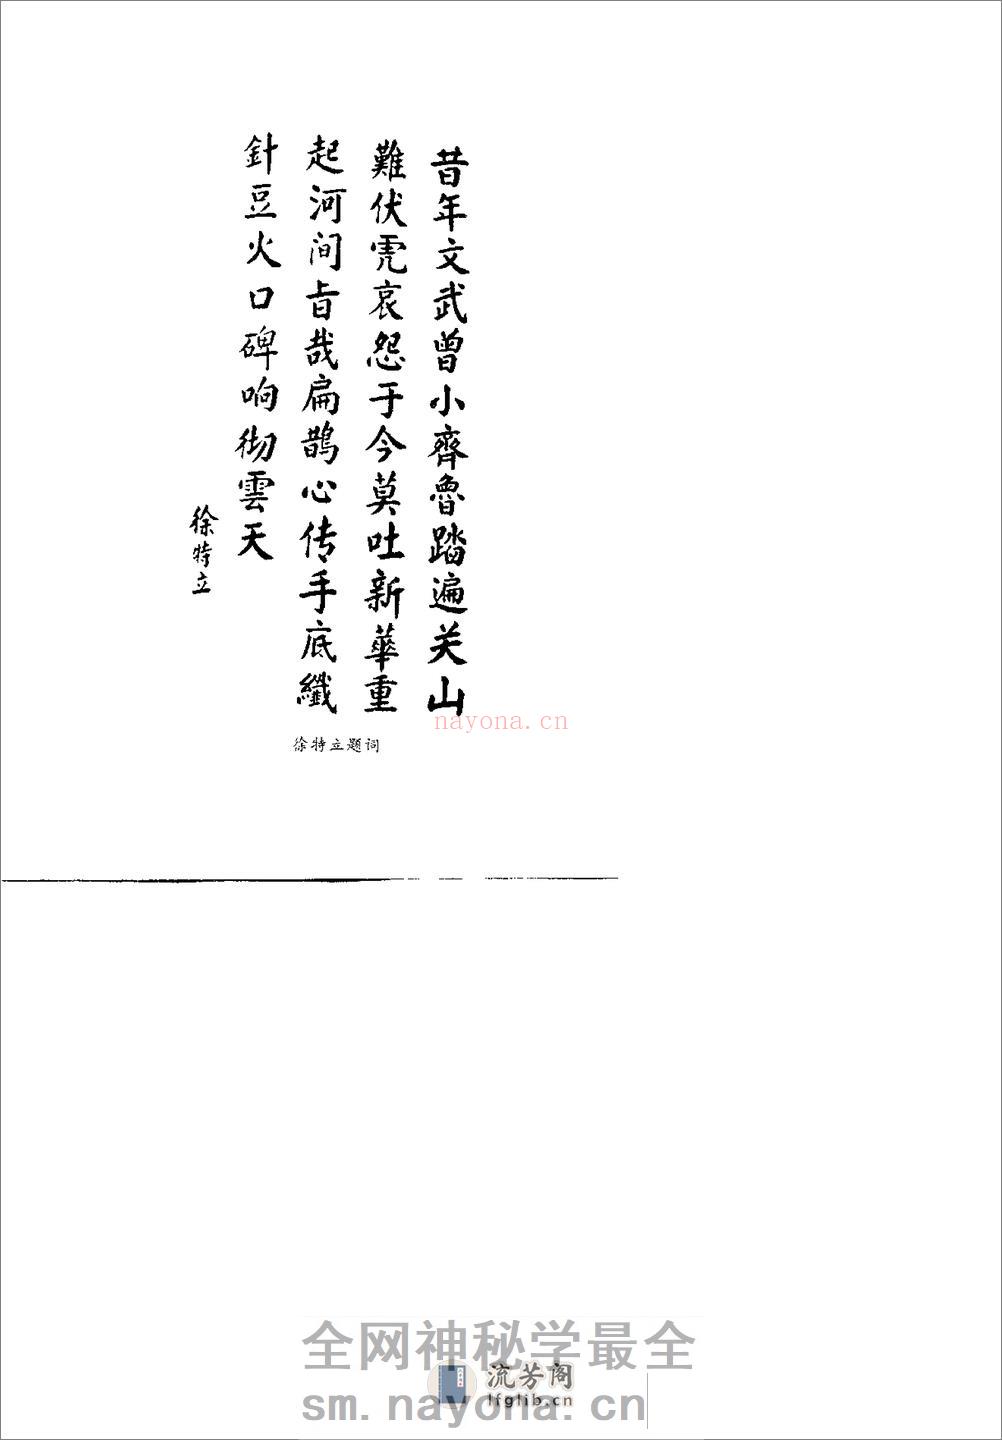 昔年文武曾小齊魯踏遍关山
難伏虎哀怨于今莫吐新華重
起河间旨哉扁鹊心传手底纖
針豆火口碑响彻雲天
徐特立
nayona.cn
徐特立题词
全网神秘学最全
流芳阁
lfglib.cn
sm.nayona.cn